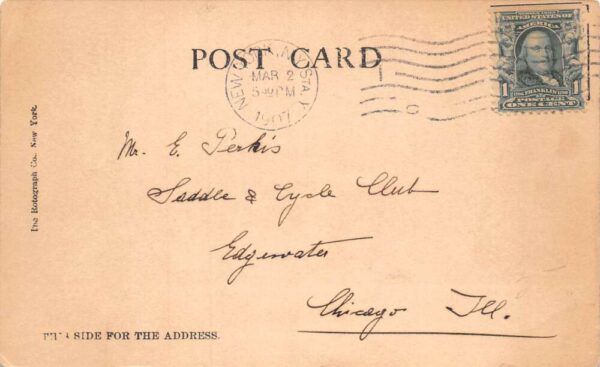 POST CARD
NEW YORK, N.Y. STA.
MAR 2
5-PM
1907
UNITED STATES OF
AMERICA
1 FRANKLIN 1
POSTAGE
ONE CENT
The Rotograph Co., New York.
Mr. E. Perkis
Saddle & Cycle Club
Edgewater
Chicago Ill.
SIDE FOR THE ADDRESS.